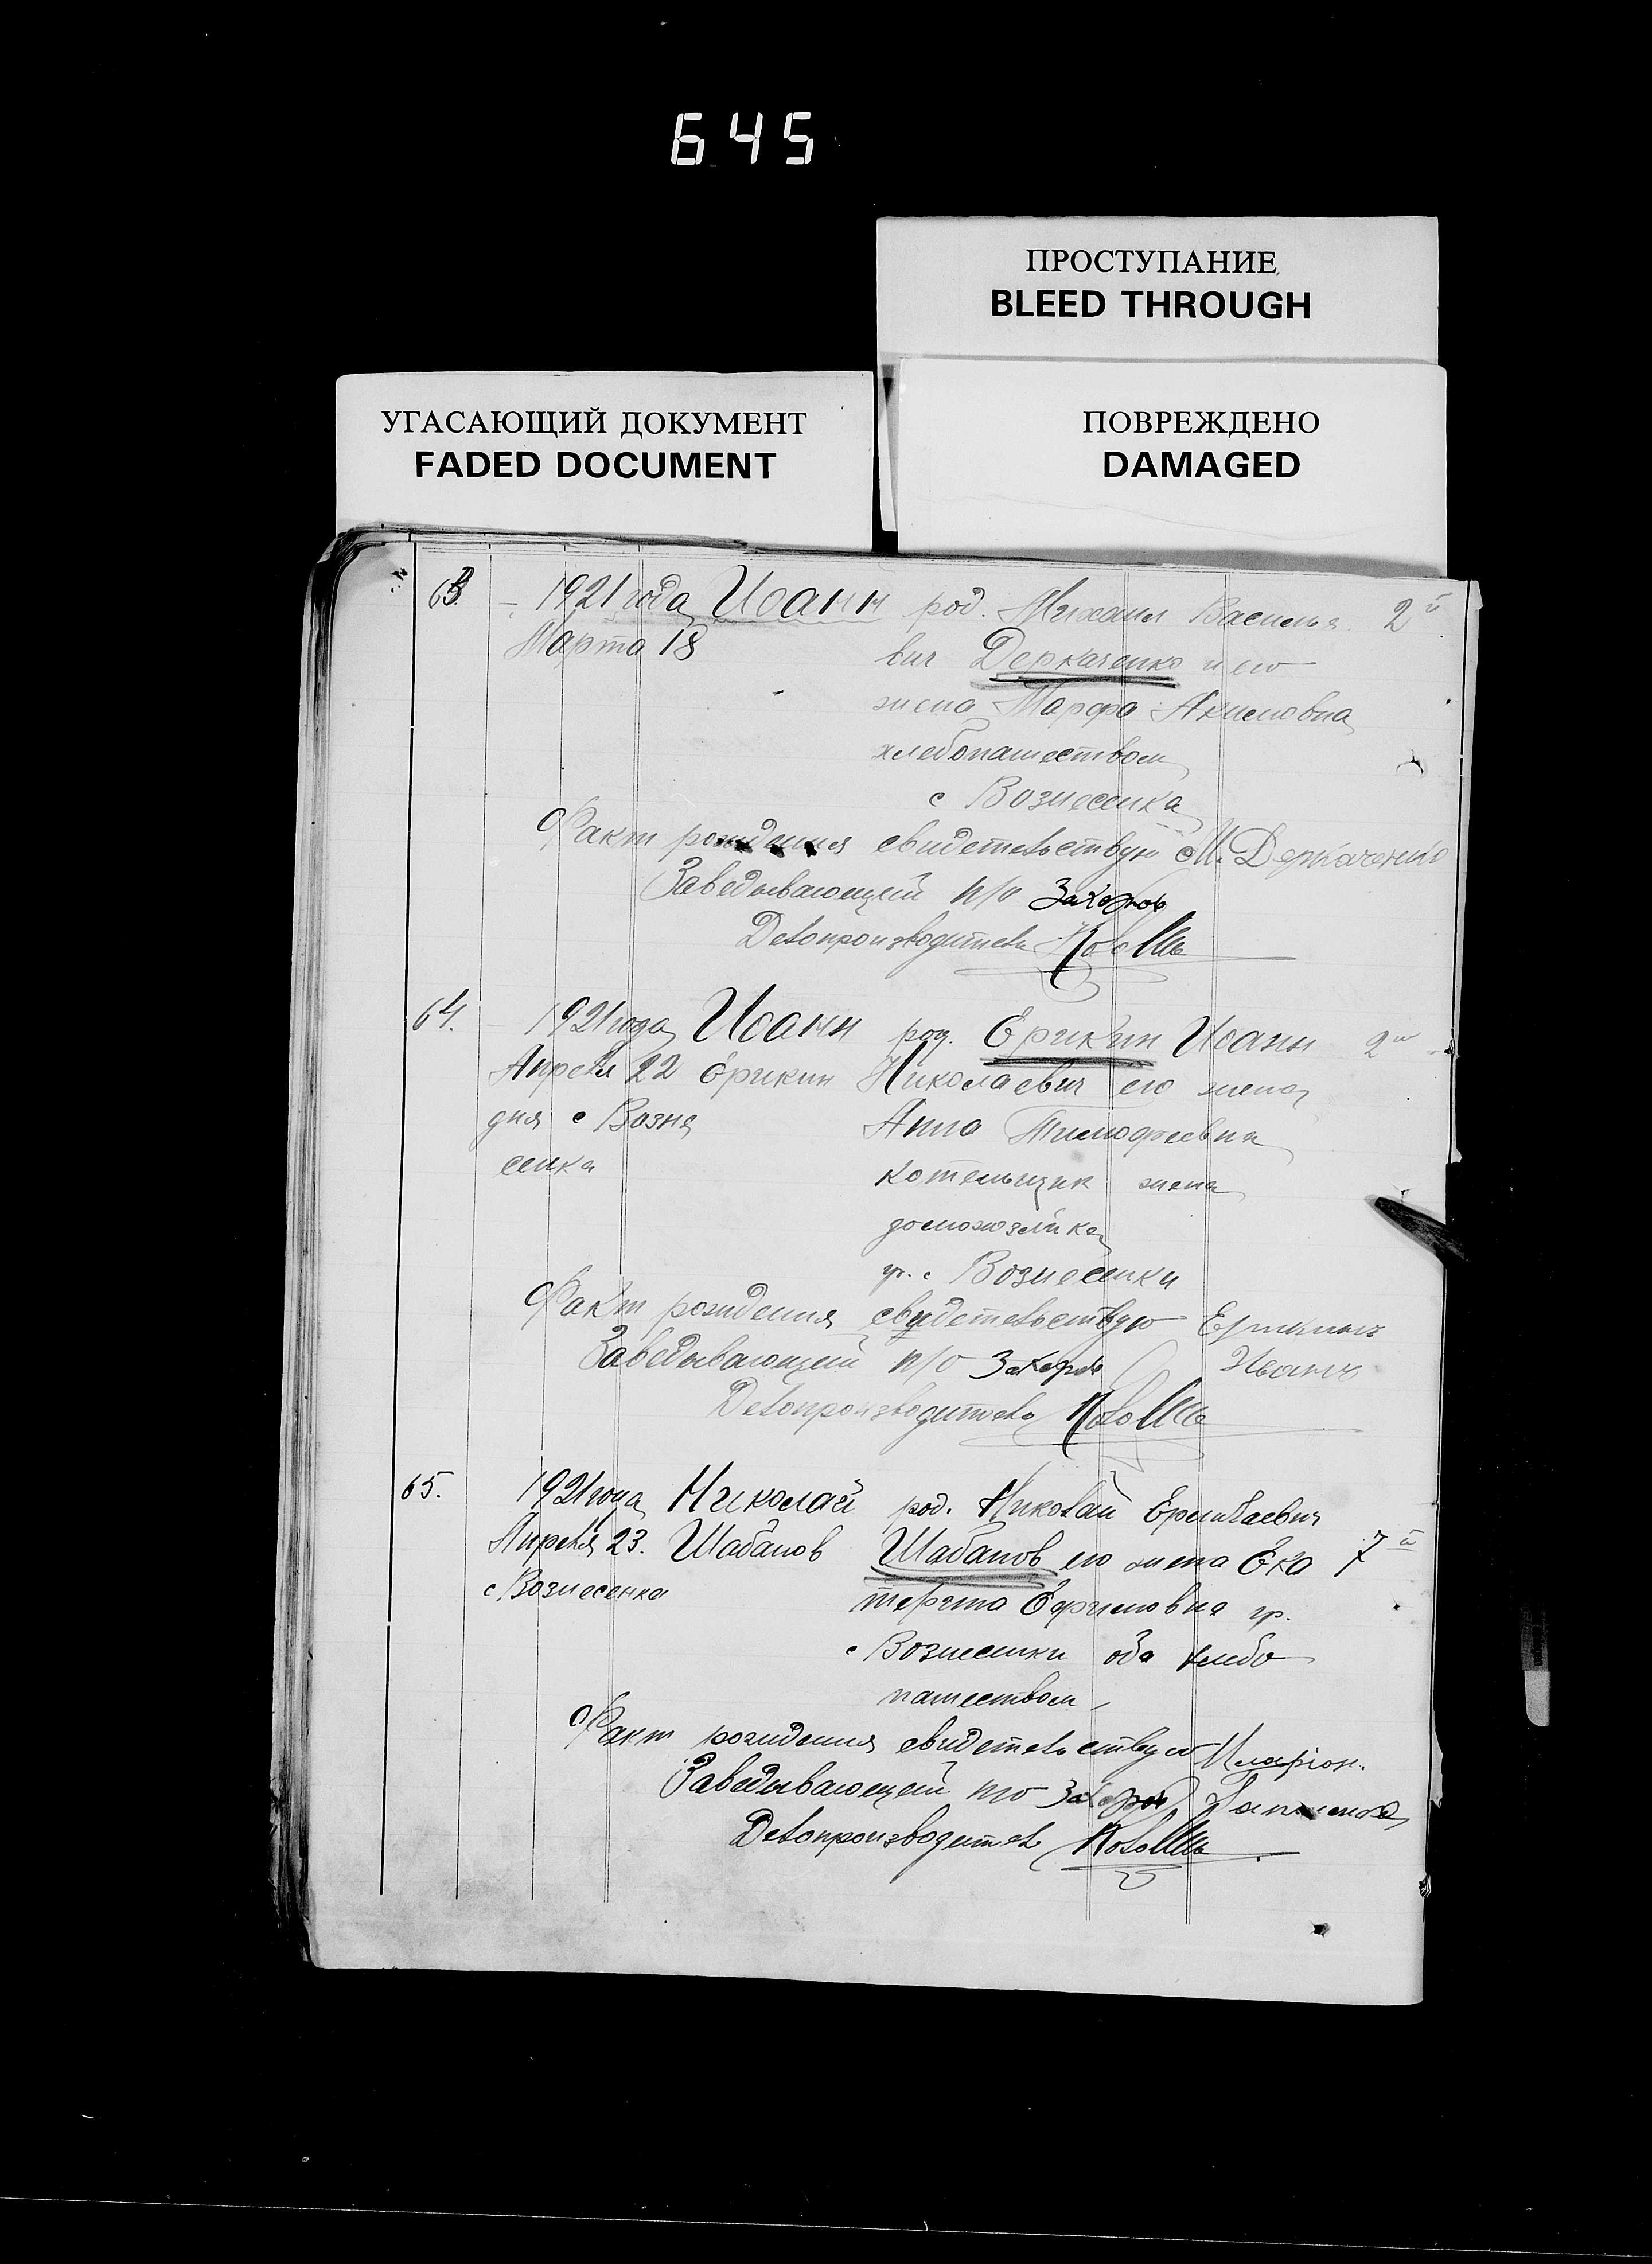 645
ПРОСТУПАНИЕ
BLEED THROUGH
УГАСАЮЩИЙ ДОКУМЕНТ
FADED DOCUMENT
ПОВРЕЖДЕНО
DAMAGED
63. 1921 года Иоанн род. Михаил Василье 2й
Марта 18 вич Деркаченко и его
жена Марфа Акимовна
хлебопашеством
с Вознесенка
Факт рождения свидетельствую М. Деркаченко
Заведывающий п/о Захаров
Делопроизводитель
64. 1921 года Иоанн род. Ерикин Иоанн 2й
Апреля 22 Ерикин Николаевич его жена
дня с Возне Анна Тимофеевна
сенка котельщик жена
домохозяйка
гр. с Вознесенки
Факт рождения свидетельствую Ерикинъ
Заведывающий п/о Захаров Иванъ
Делопроизводитель
65. 1921 года Николай род. Николай Ермолаевич
Апреля 23. Шабанов Шабанов его жена Ека 7й
с. Вознесенка терина Ефимовна гр.
с Вознесенки оба хлебо
пашеством
Факт рождения свидетельствую Иларіон.
Заведывающий п/о Захаров
Делопроизводитель